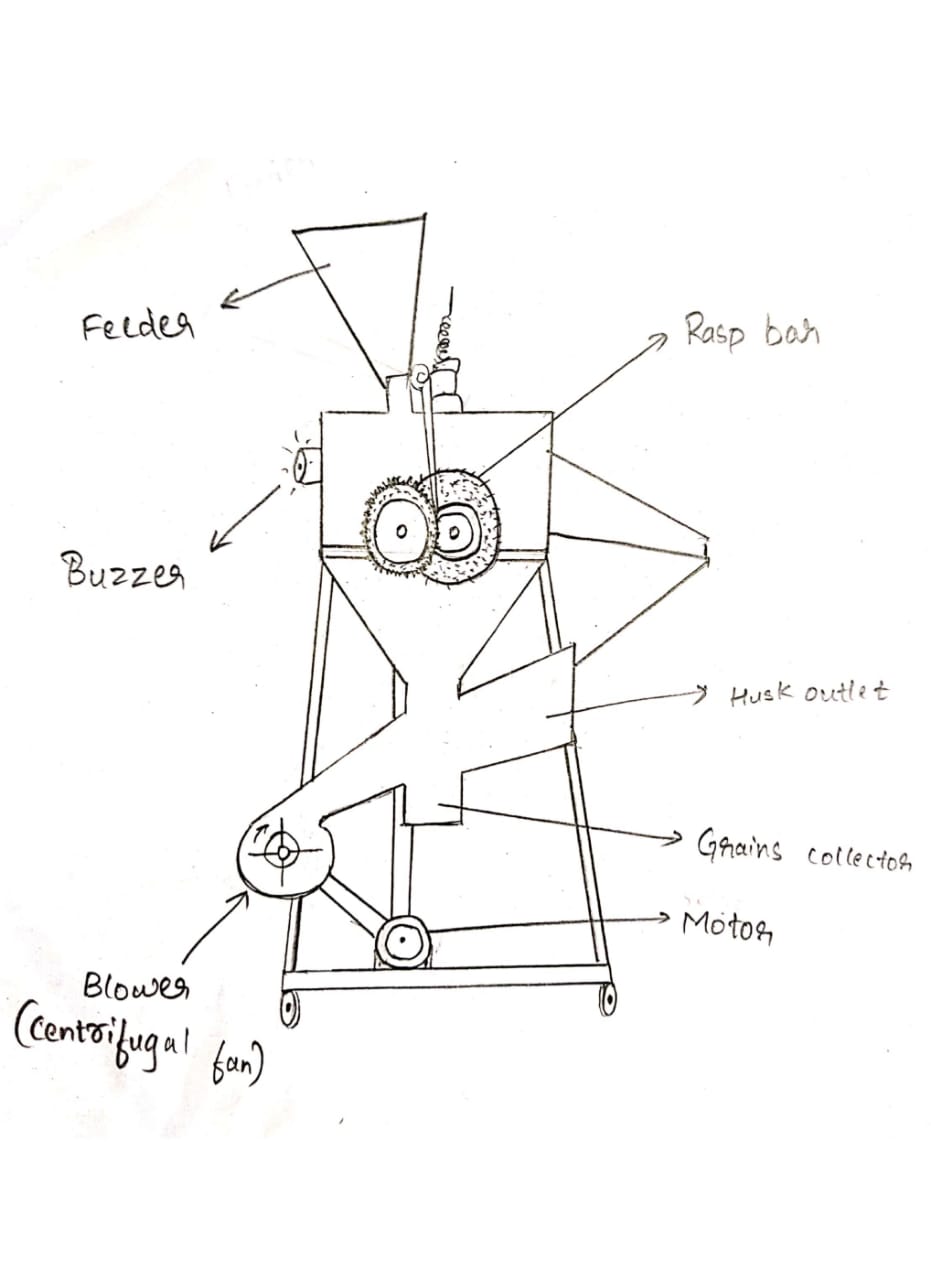 Feeder
Rasp bar
Buzzer
Husk outlet
Grains collector
Motor
Blower
(Centrifugal fan)